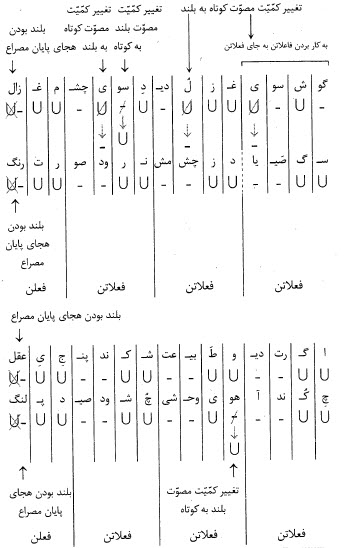 تغییر کمیّت مصوت کوتاه به بلند
تغییر کمیّت مصوّت بلند به کوتاه
تغییر کمیّت مصوت کوتاه به بلند
بلند بودن هجای پایان مصراع
به کار بردن فاعلاتن به جای فعلاتن
گو ش سو ی غـ ز لْ دیـ دِ سو ی چشـ م غـ زال
سـ گ صَیـ یا د ز چش مش نـ ر ود صو ر ت رنگ
بلند بودن هجای پایان مصراع
فعلاتن فعلاتن فعلاتن فعلن
بلند بودن هجای پایان مصراع
ا گـ رت دیـ و طَـ بیـ عت شـ کـ ند پنـ جـ یِ عقل
چـ کُـ ند آ هو ی وحـ شی چُ شـ ود صیـ د پـ لنگ
تغییر کمیّت مصوّت بلند به کوتاه
بلند بودن هجای پایان مصراع
فعلاتن فعلاتن فعلاتن فعلن